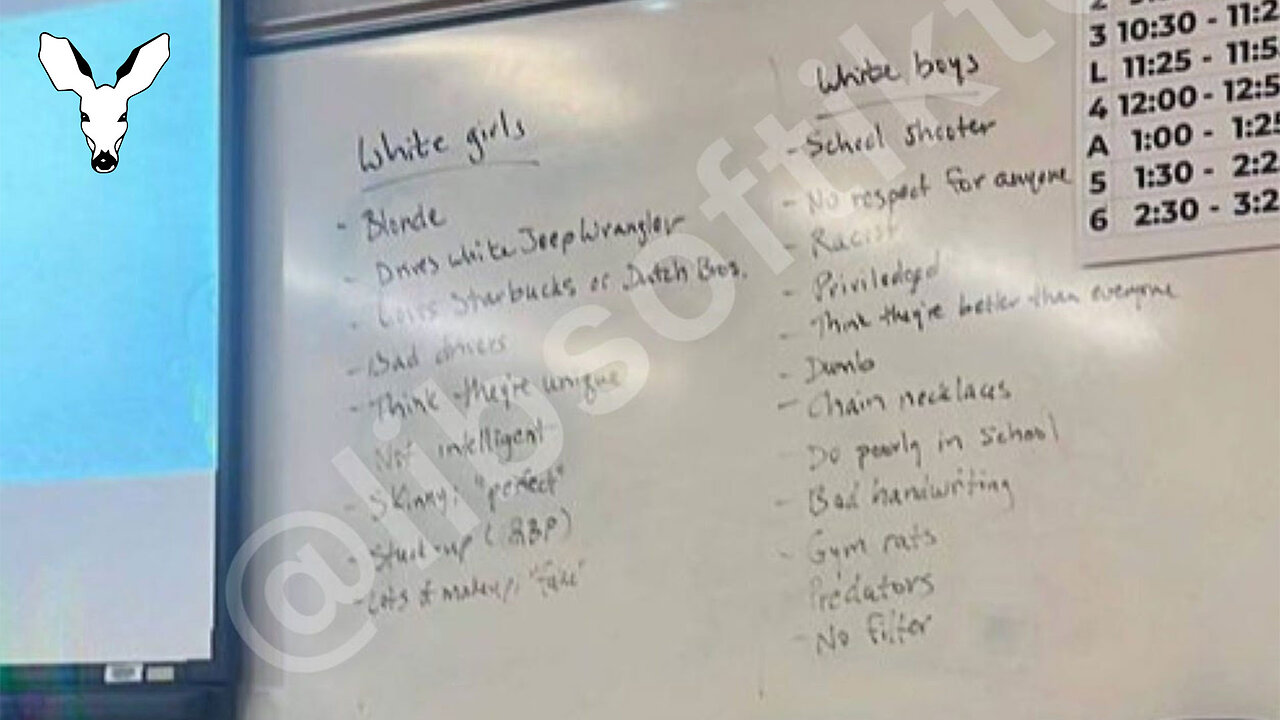 White girls
- Blonde
- Drives white Jeep Wrangler
- Loves Starbucks or Dutch Bros.
- Bad drivers
- Think they're unique
- Not intelligent
- Skinny; "perfect"
- Stuck-up (RBF)
- Lots of makeup; "fake"
White boys
- School shooter
- No respect for anyone
- Racist
- Priviledged
- Think they're better than everyone
- Dumb
- Chain necklaces
- Do poorly in school
- Bad handwriting
- Gym rats
- Predators
- No filter
3 10:30 - 11:2
L 11:25 - 11:5
4 12:00 - 12:5
A 1:00 - 1:25
5 1:30 - 2:2
6 2:30 - 3:2
@libsoftikto